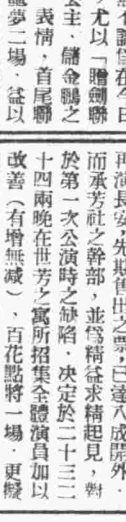 僅在今日
尤以「贈劍聯
公主、儲金鵬之
表情，首尾聯
夢二場，益以
再演長安，先期售出之票，已達八成開外，
而承芳社之幹部，並爲精益求精起見，對
於第一次公演時之缺陷，决定於二十三二
十四兩晚在世芳之寓所招集全體演員加以
改善（有增無减），百花點將一場，更擬